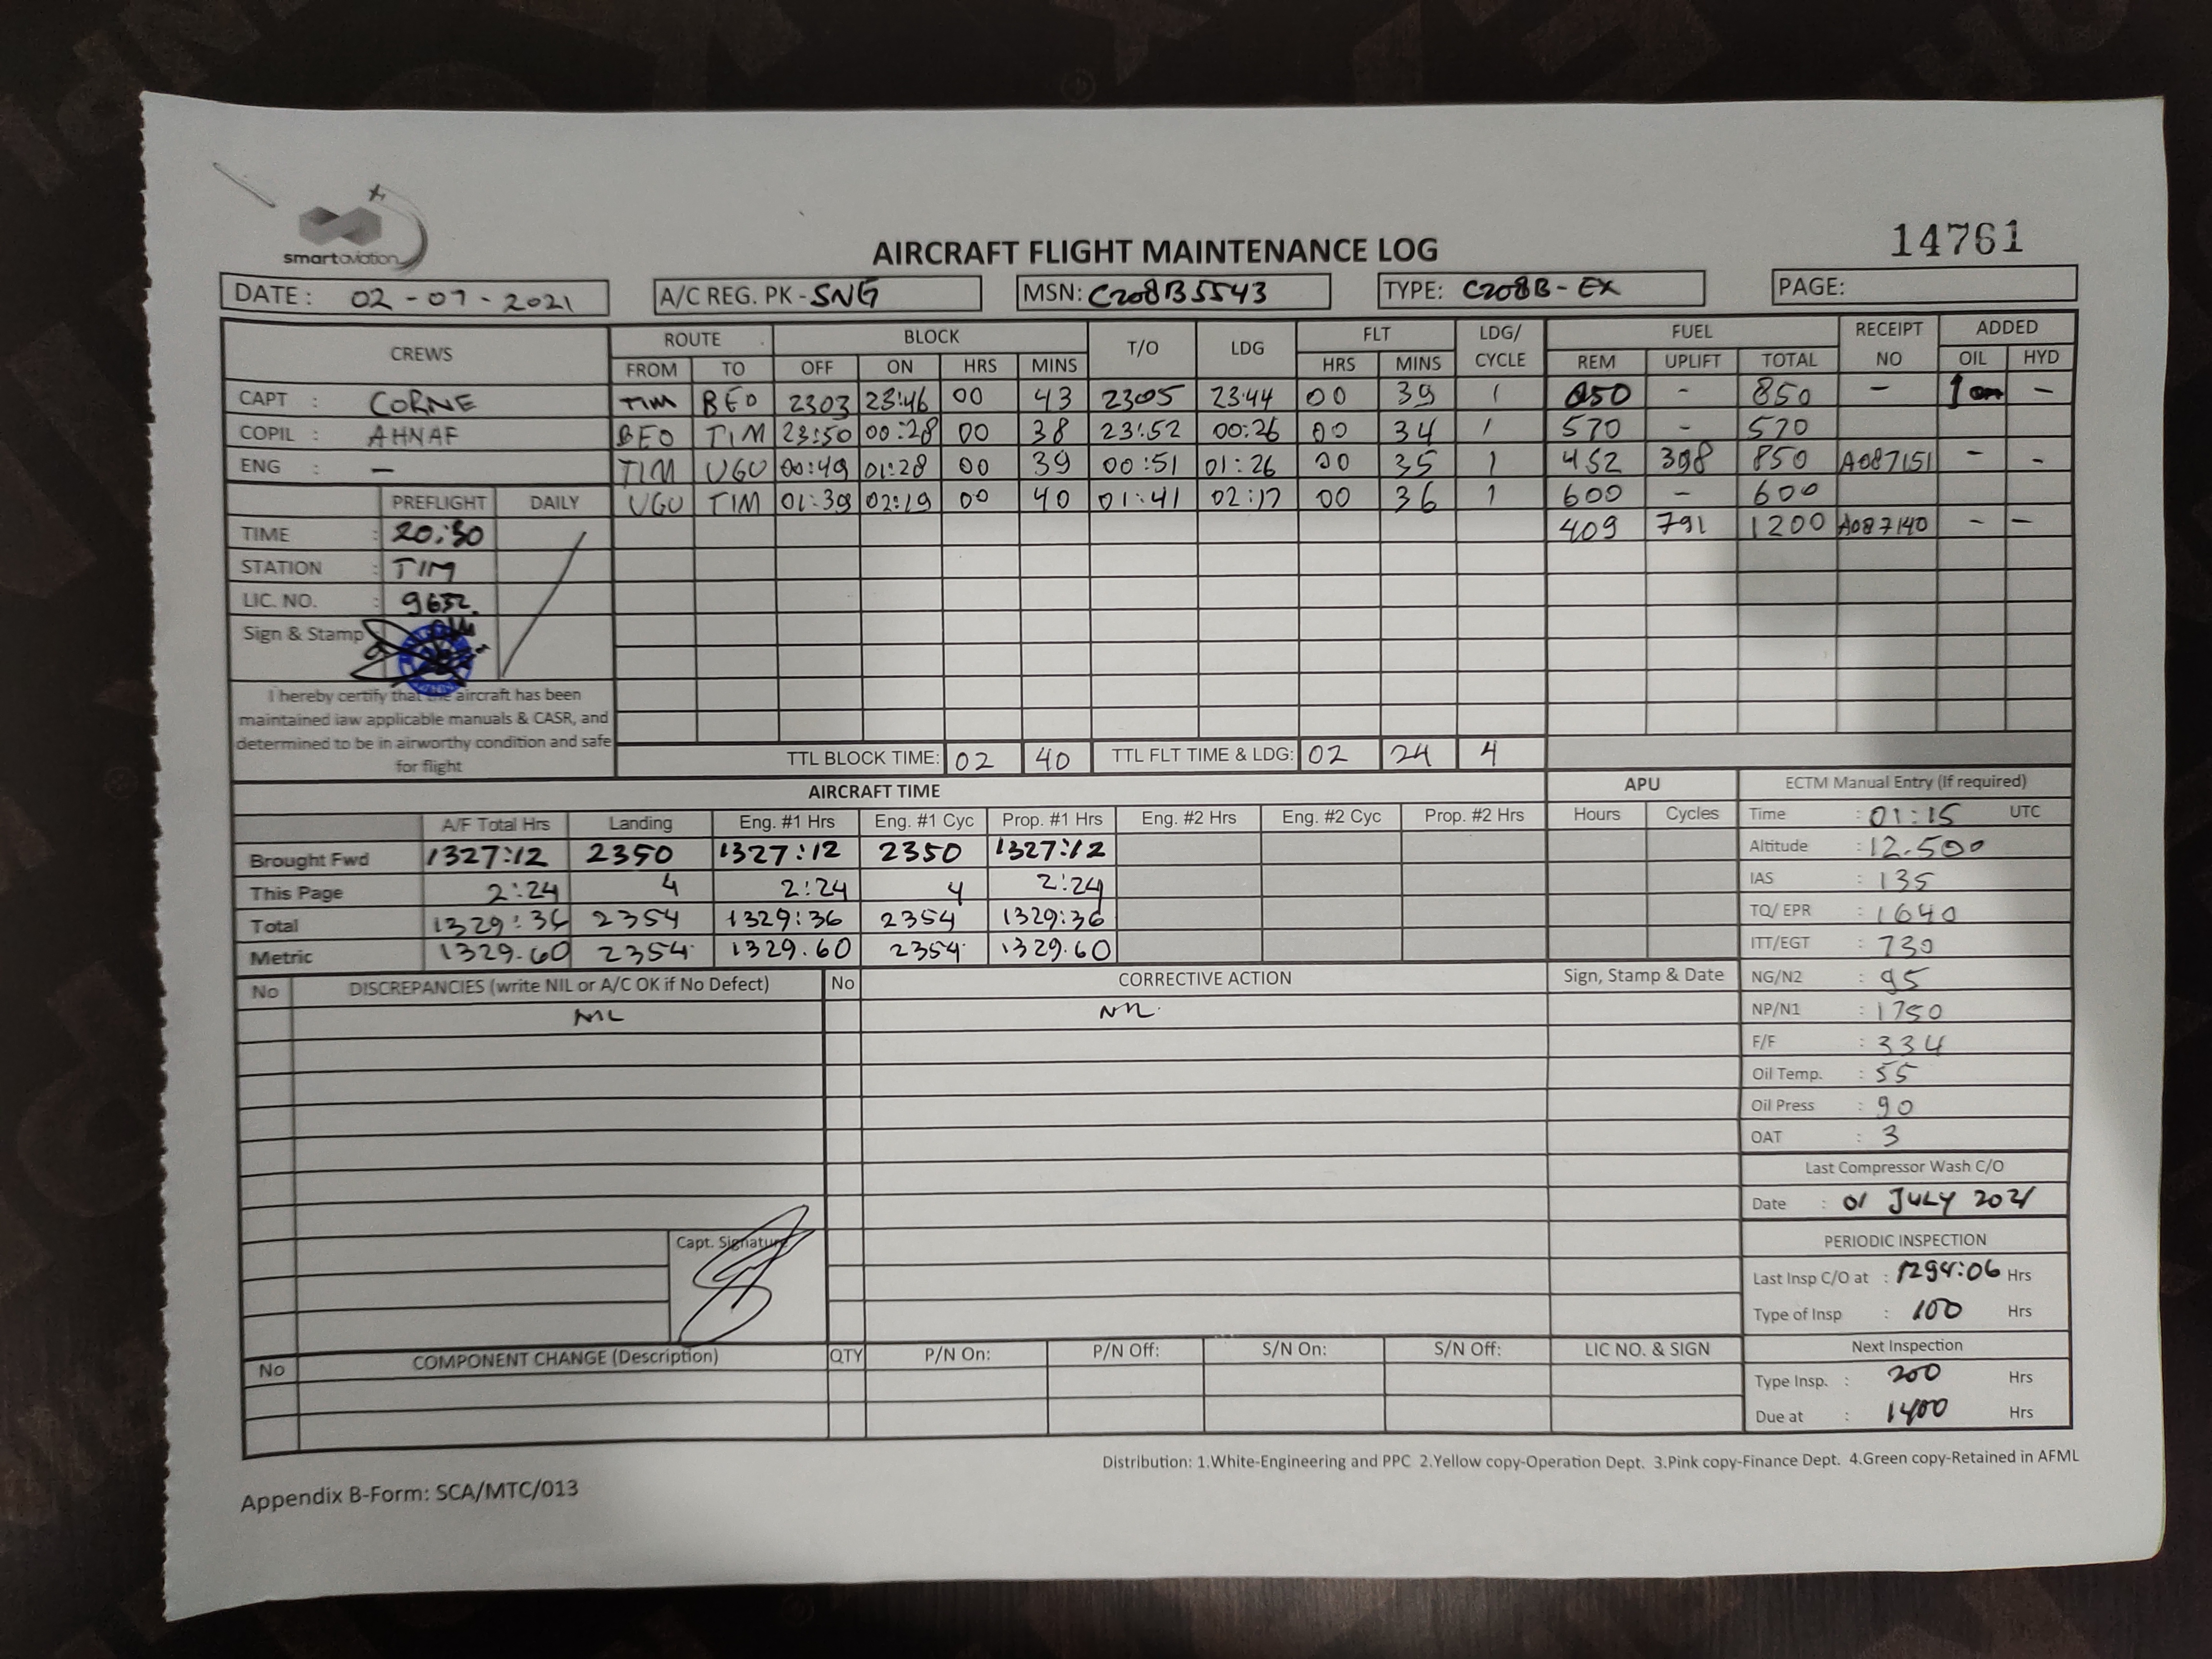 smartaviation
AIRCRAFT FLIGHT MAINTENANCE LOG
14761
DATE : 02-07-2021 A/C REG. PK-SNG MSN: C208B5543 TYPE: C208B-EX PAGE:
CREWS ROUTE BLOCK T/O LDG FLT LDG/ CYCLE FUEL RECEIPT NO ADDED
FROM TO OFF ON HRS MINS HRS MINS REM UPLIFT TOTAL OIL HYD
CAPT : CORNE TIM BEO 2303 23:46 00 43 2305 23:44 00 39 1 850 - 850 - 1 -
COPIL : AHNAF BEO TIM 23:50 00:28 00 38 23:52 00:26 00 34 1 570 - 570
ENG : - TIM UGU 00:49 01:28 00 39 00:51 01:26 00 35 1 452 398 850 A087151 - -
PREFLIGHT DAILY UGU TIM 01:39 02:19 00 40 01:41 02:17 00 36 1 600 - 600
TIME : 20:30 409 791 1200 A087140 - -
STATION : TIM
LIC. NO. : 9632.
Sign & Stamp
I hereby certify that the aircraft has been
maintained iaw applicable manuals & CASR, and
determined to be in airworthy condition and safe
for flight
TTL BLOCK TIME: 02 40 TTL FLT TIME & LDG: 02 24 4
AIRCRAFT TIME APU ECTM Manual Entry (If required)
A/F Total Hrs Landing Eng. #1 Hrs Eng. #1 Cyc Prop. #1 Hrs Eng. #2 Hrs Eng. #2 Cyc Prop. #2 Hrs Hours Cycles Time : 01:15 UTC
Brought Fwd 1327:12 2350 1327:12 2350 1327:12 Altitude : 12.500
This Page 2:24 4 2:24 4 2:24 IAS : 135
Total 1329:36 2354 1329:36 2354 1329:36 TQ/ EPR : 1640
Metric 1329.60 2354. 1329.60 2354. 1329.60 ITT/EGT : 730
No DISCREPANCIES (write NIL or A/C OK if No Defect) No CORRECTIVE ACTION Sign, Stamp & Date NG/N2 : 95
NIL NIL. NP/N1 : 1750
F/F : 334
Oil Temp. : 55
Oil Press : 90
OAT : 3
Last Compressor Wash C/O
Date : 01 JULY 2021
Capt. Signature
PERIODIC INSPECTION
Last Insp C/O at : 1294:06 Hrs
Type of Insp : 100 Hrs
No COMPONENT CHANGE (Description) QTY P/N On: P/N Off: S/N On: S/N Off: LIC NO. & SIGN Next Inspection
Type Insp. : 200 Hrs
Due at : 1400 Hrs
Distribution: 1.White-Engineering and PPC 2.Yellow copy-Operation Dept. 3.Pink copy-Finance Dept. 4.Green copy-Retained in AFML
Appendix B-Form: SCA/MTC/013